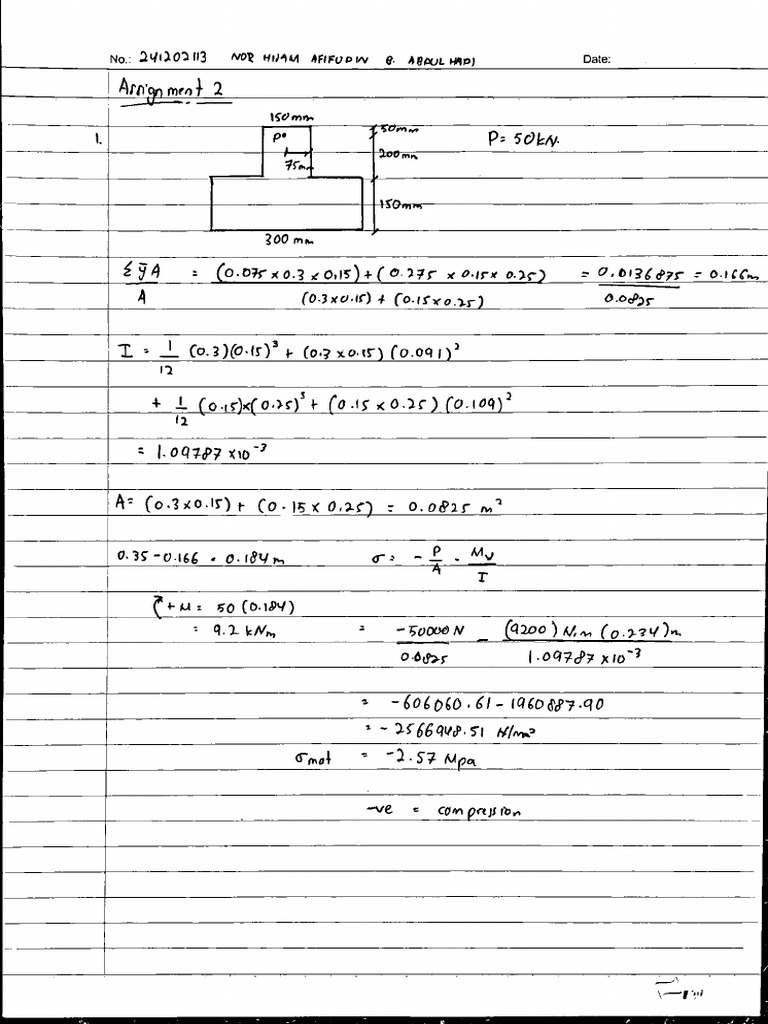 No.: 241202113 NOR HIJAM AFIFUDIN B. ABDUL HADI Date:
Assignment 2
150mm
1. P 50mm P = 50kN.
200mm
75mm
150mm
300 mm
Σ ȳA / A = (0.075 x 0.3 x 0.15) + (0.275 x 0.15 x 0.25) / (0.3 x 0.15) + (0.15 x 0.25) = 0.0136875 / 0.0825 = 0.166m
I = 1/12 (0.3)(0.15)³ + (0.3 x 0.15) (0.091)²
+ 1/12 (0.15)x(0.25)³ + (0.15 x 0.25) (0.109)²
= 1.09787 x10⁻³
A = (0.3 x 0.15) + (0.15 x 0.25) = 0.0825 m²
0.35 - 0.166 = 0.184m σ = - P/A - My/I
+M = 50 (0.184)
= 9.2 kNm = -50000N / 0.0825 - (9200) N.m (0.234)m / 1.09787 x10⁻³
= -606060.61 - 1960887.90
= -2566948.51 N/m²
σ mat = -2.57 Mpa
-ve = compression